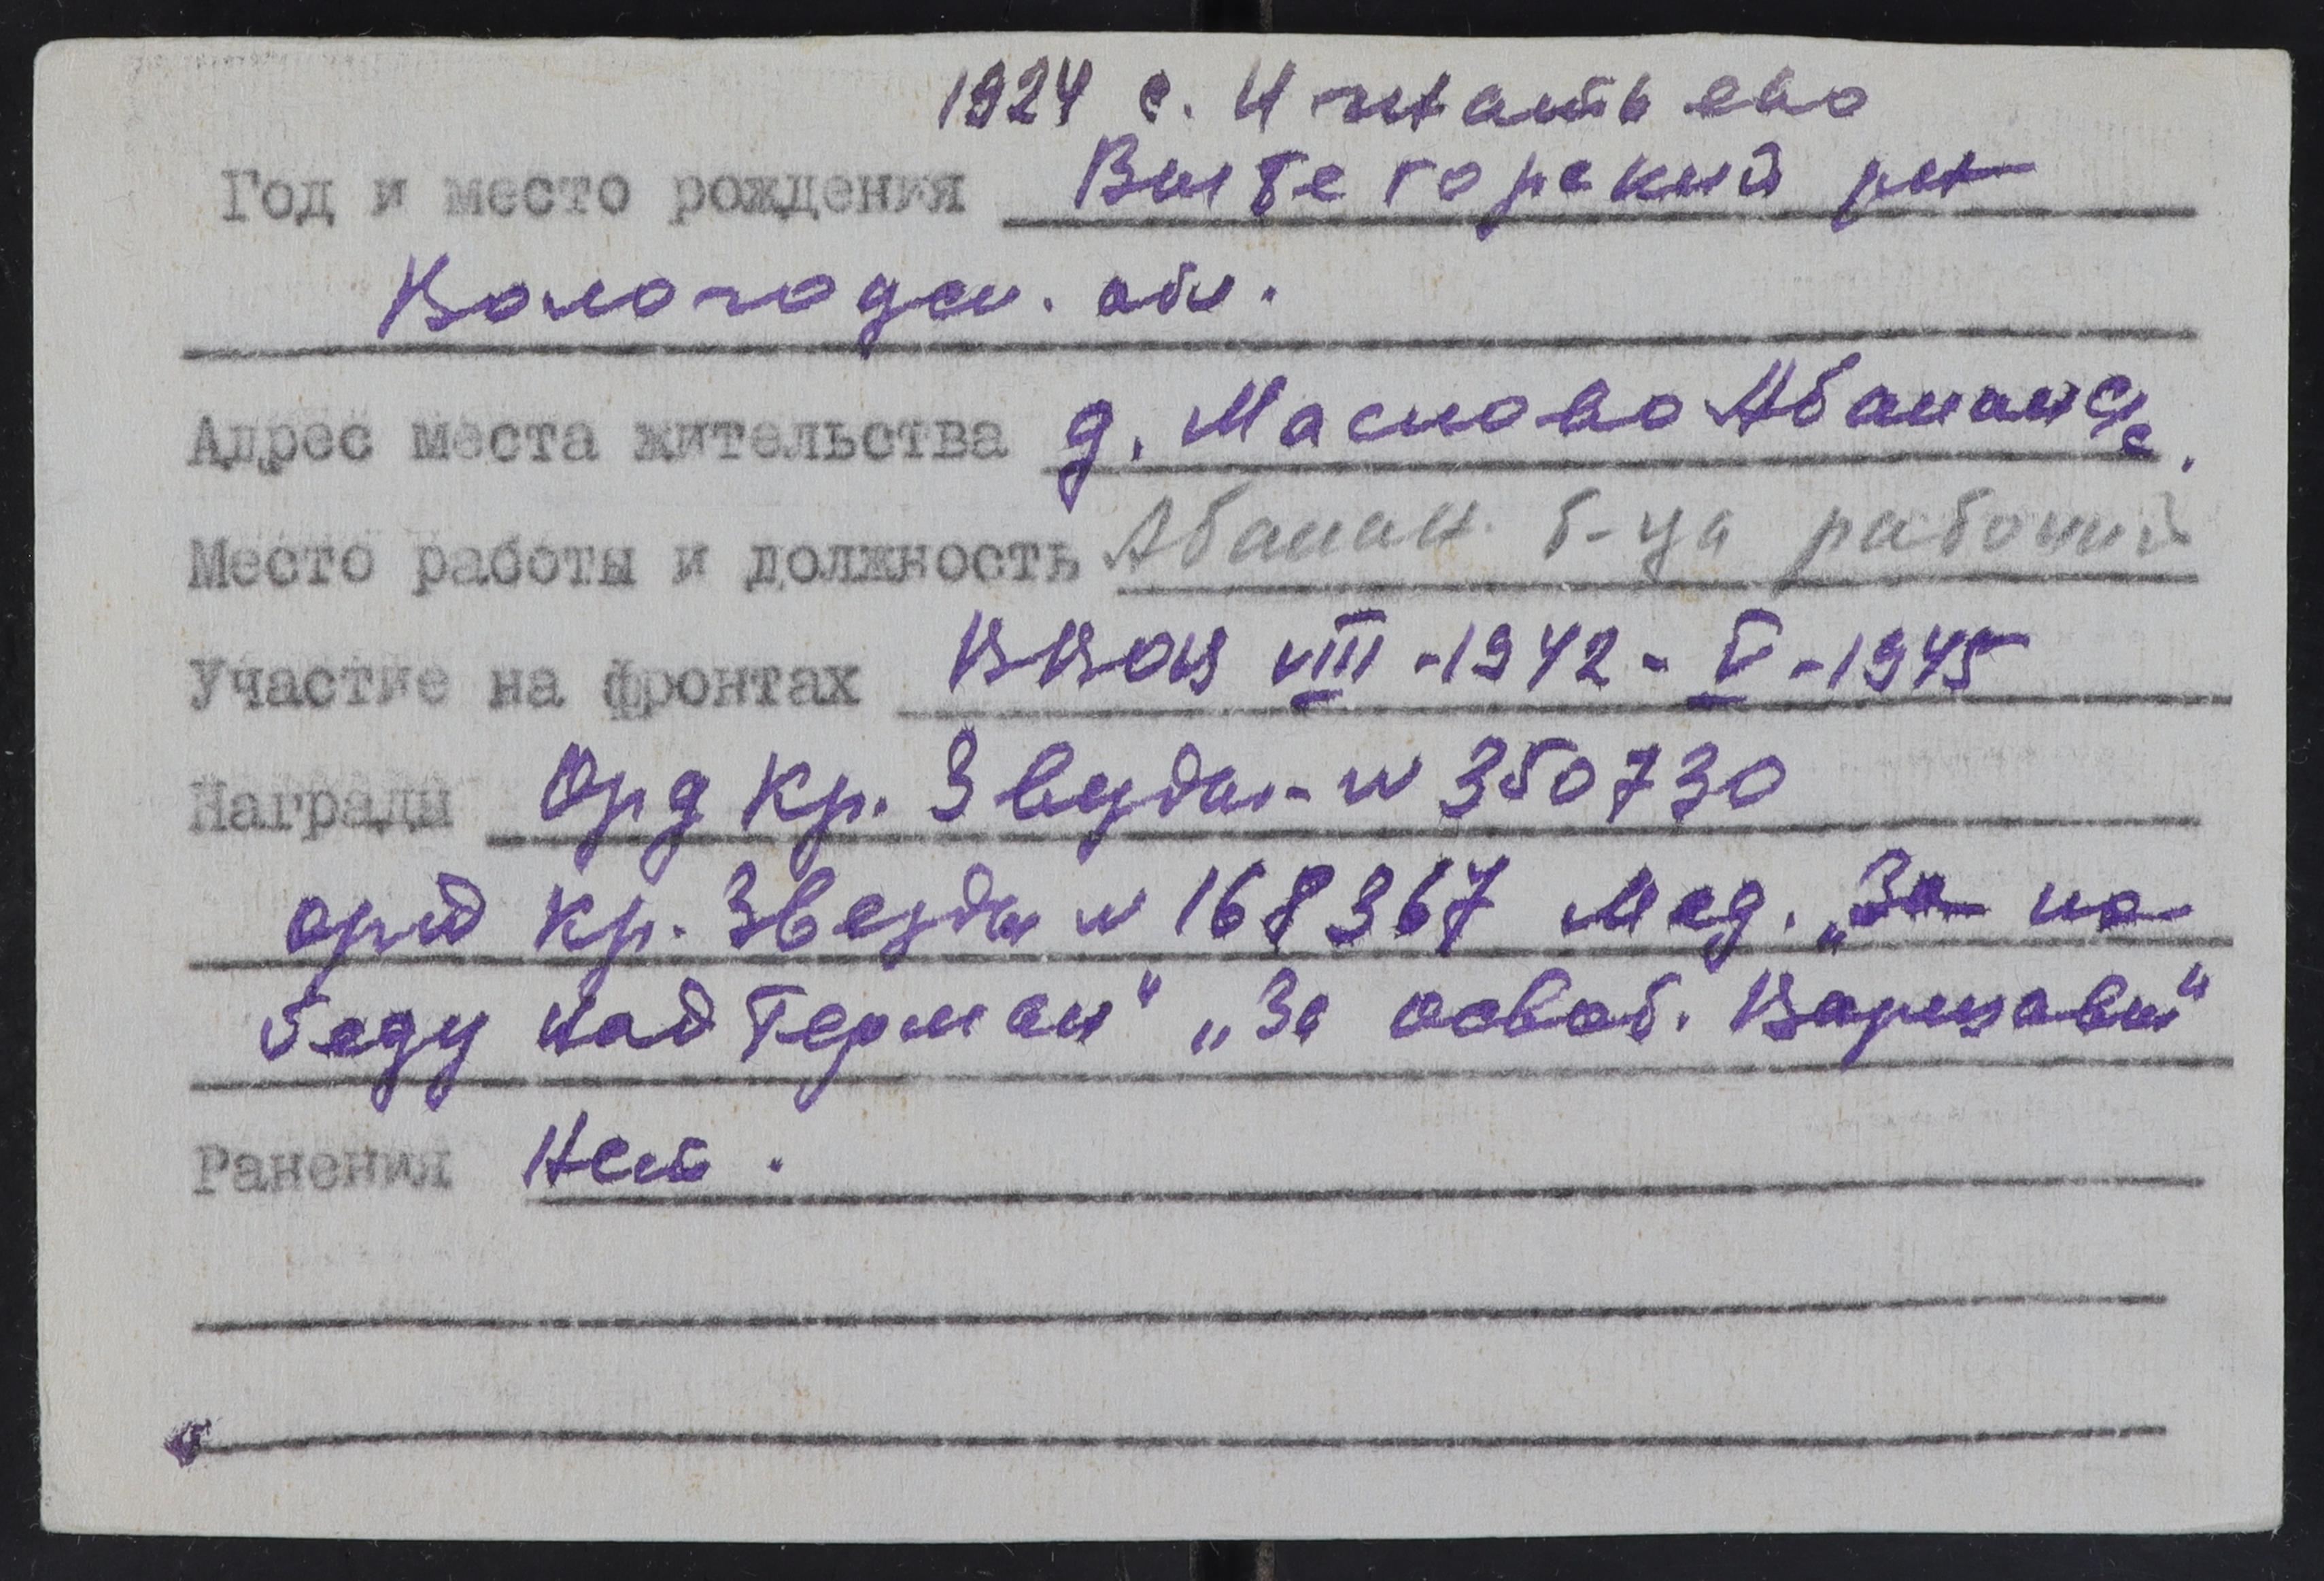 1924 с. Игнатьево
Год и место рождения Вытегорский рн
Вологодск. обл.
Адрес места жительства д. Маслово Абакан с/с.
Место работы и должность Абакан. б-ца рабочий
Участие на фронтах ВВОВ VIII-1942-V-1945
Награды Орд Кр. Звезды-N 350730
орд Кр. Звезды N 168367 Мед. „За по-
беду над Герман" „За освоб. Варшавы"
Ранения Нет.